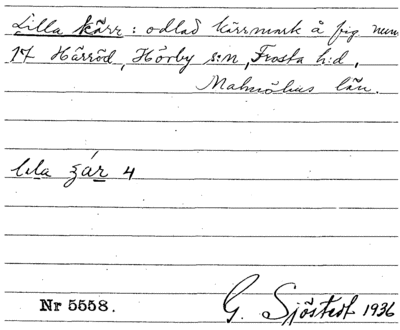 Lilla kärr: odlad kärrmark å fig. num
17 Härröd, Hörby s:n, Frosta h:d,
Malmöhus län.
4
Nr 5558.
G. Sjöstedt 1936